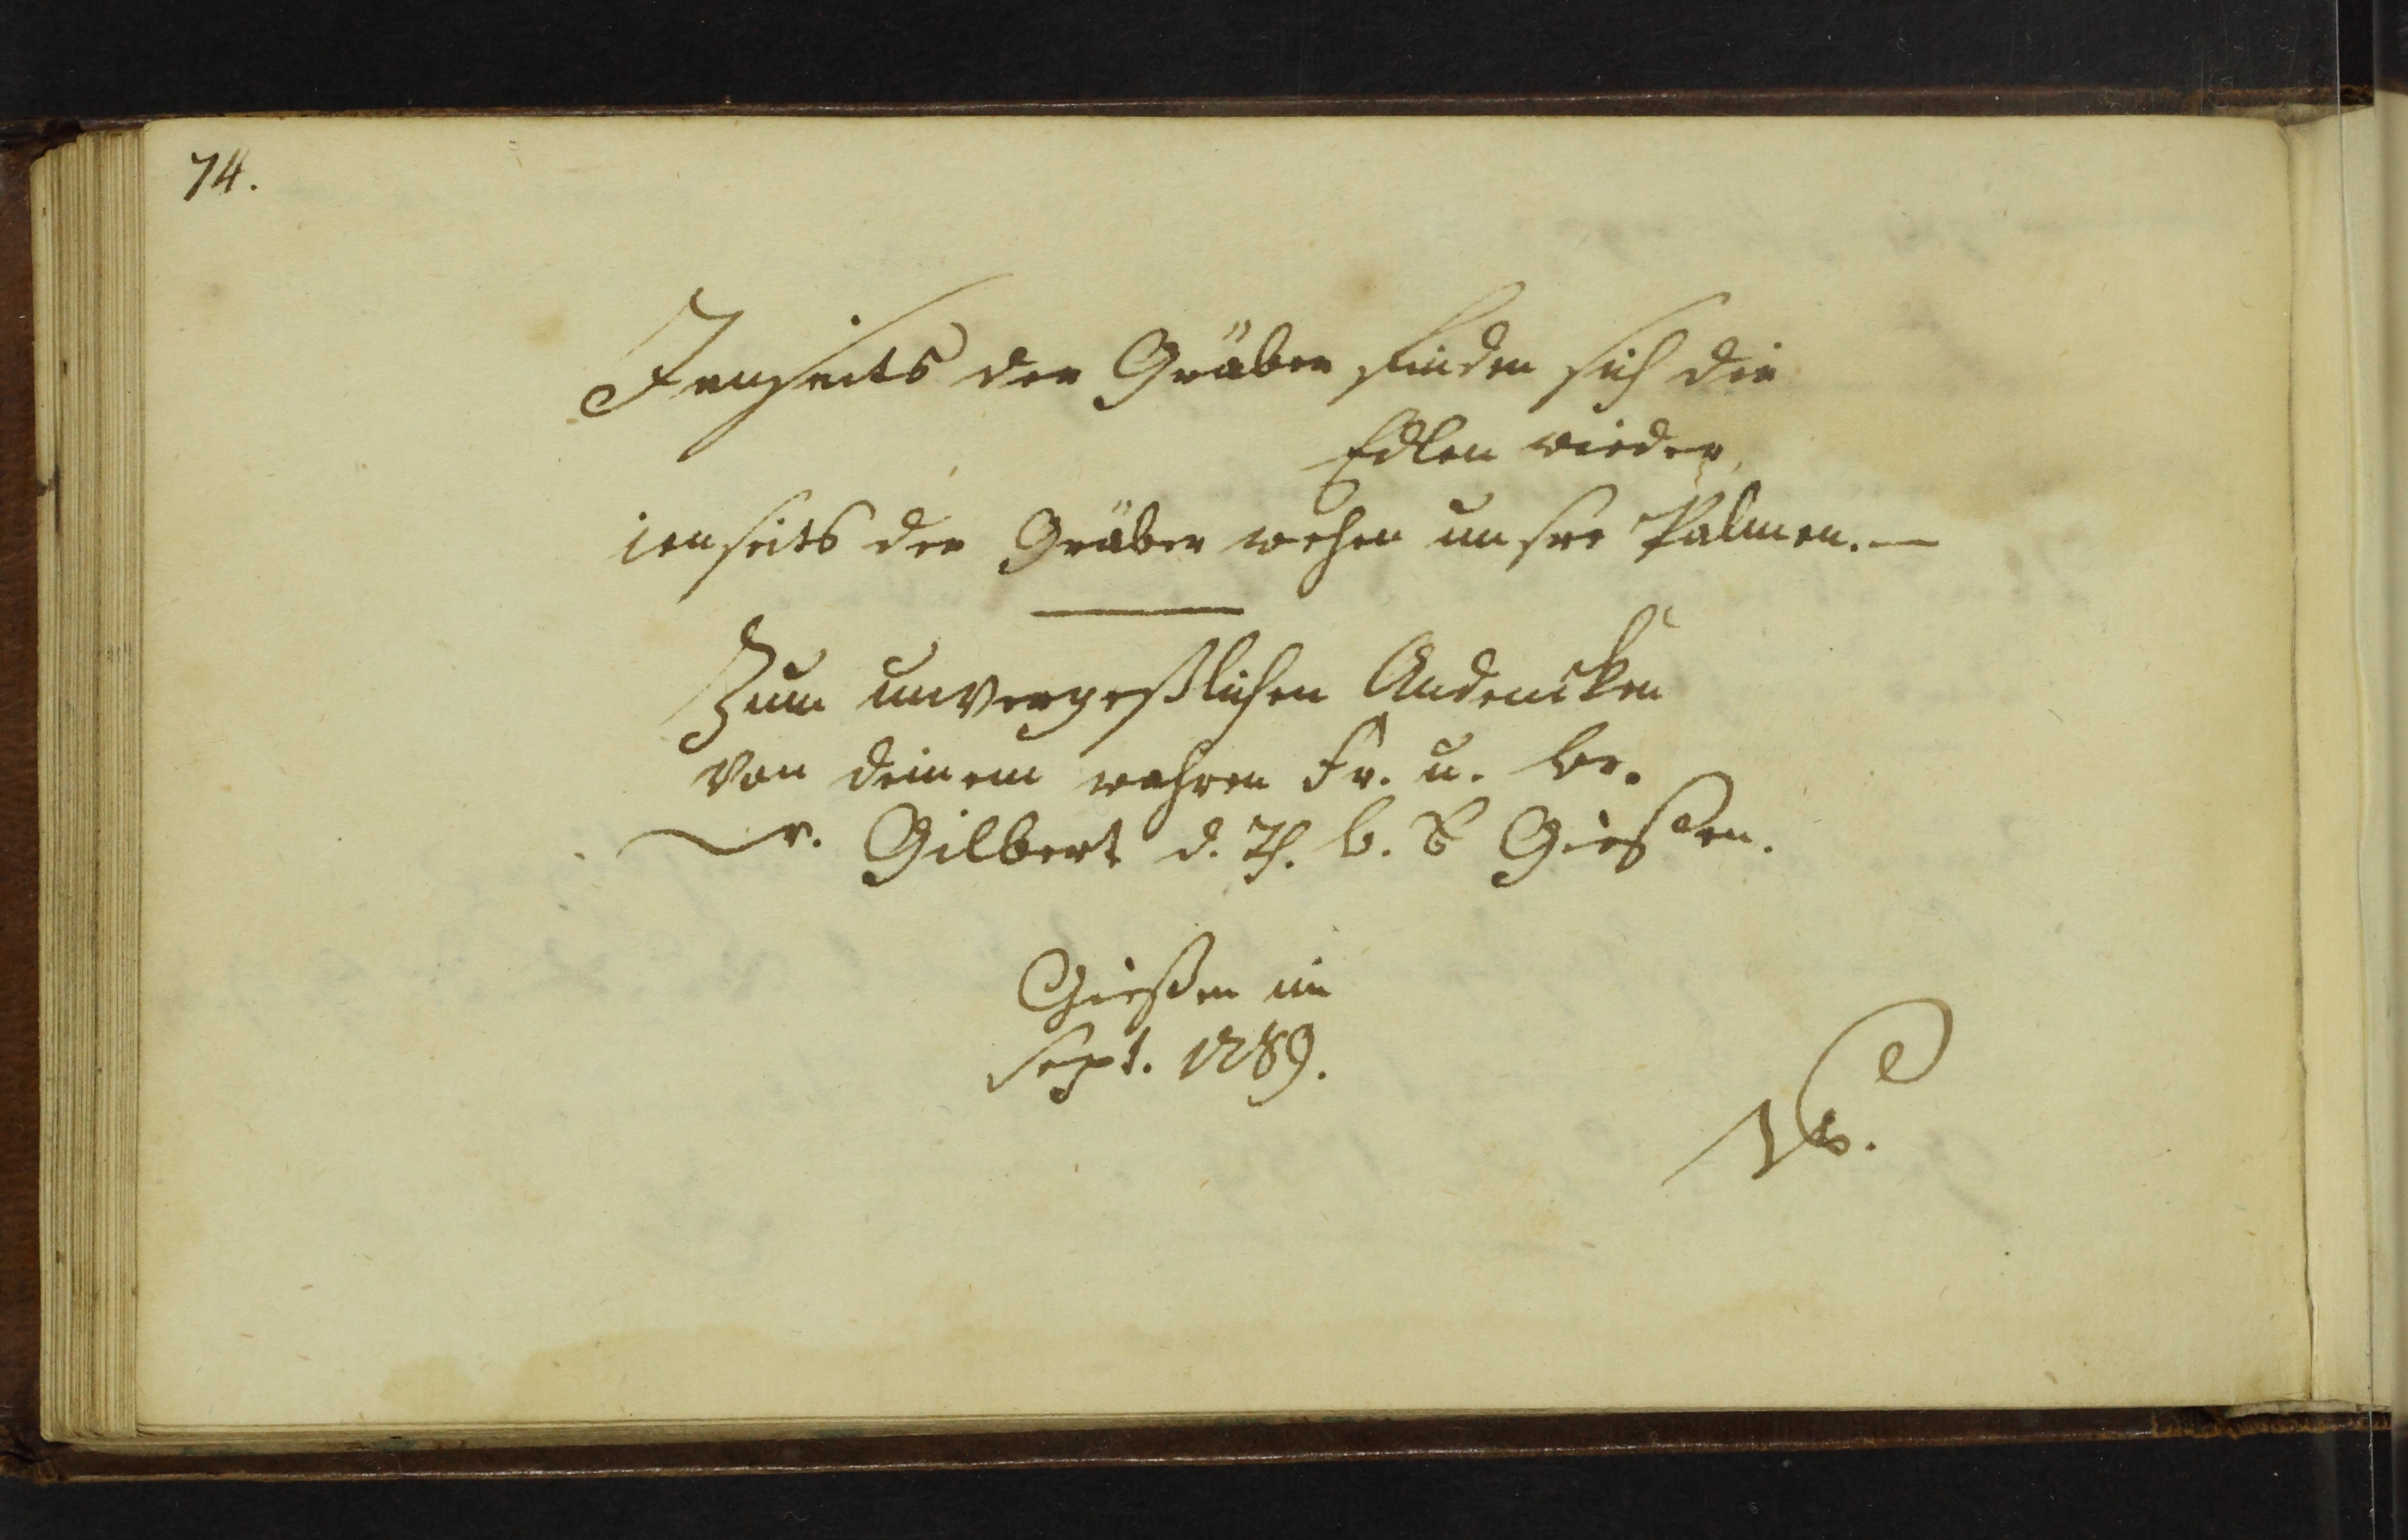 74.
Jenseits der Gräber finden sich die
Edlen wieder,
ienseits der Gräber wehen unsre Palmen. —
Zum unvergeßlichen Andencken
von deinem wahren Fr. u. br.
v. Gilbert d. Th. b. Gießen.
Gießen im
Sept. 1789.